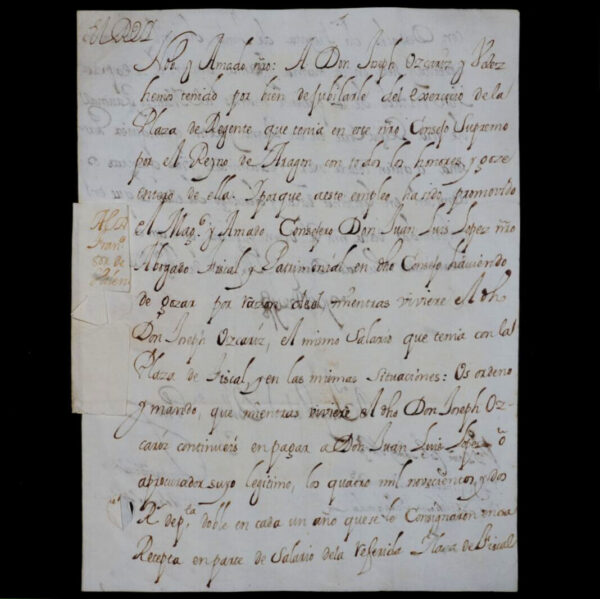 El Rey
Nob. y Amado nro: A Don Joseph Ozcariz y Velez
hemos tenido por bien de jubilarle del Exercicio de la
Plaza de Regente que tenia en este nro Consejo Supremo
por el Reyno de Aragon con todos los honores, y goze
entero de ella: Y porque a este empleo ha sido promovido
el Mag.co y Amado Consejero Don Juan Luis Lopez nro
Abogado Fiscal y Patrimonial en dho Consejo haviendo
de gozar por razon del mientras viviere el dho
Don Joseph Ozcariz, el mismo Salario que tenia con la
Plaza de Fiscal, y en las mismas situaciones: Os ordeno
y mando, que mientras viviere el dho Don Joseph Oz-
cariz continueis en pagar a Don Juan Luis Lopez ó
a procurador suyo legitimo, los quatro mil novecientos, y dos
R.s de p.ta doble en cada un año que se le Consignaron en essa
Recepta en parte de Salario de la referida Plaza de Fiscal
Fran.co